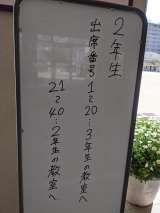 2年生
出席番号 1~20…3年生の教室へ
21~40…2年生の教室へ